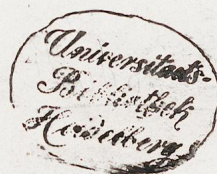 Universitaets-
Bibliothek
Heidelberg